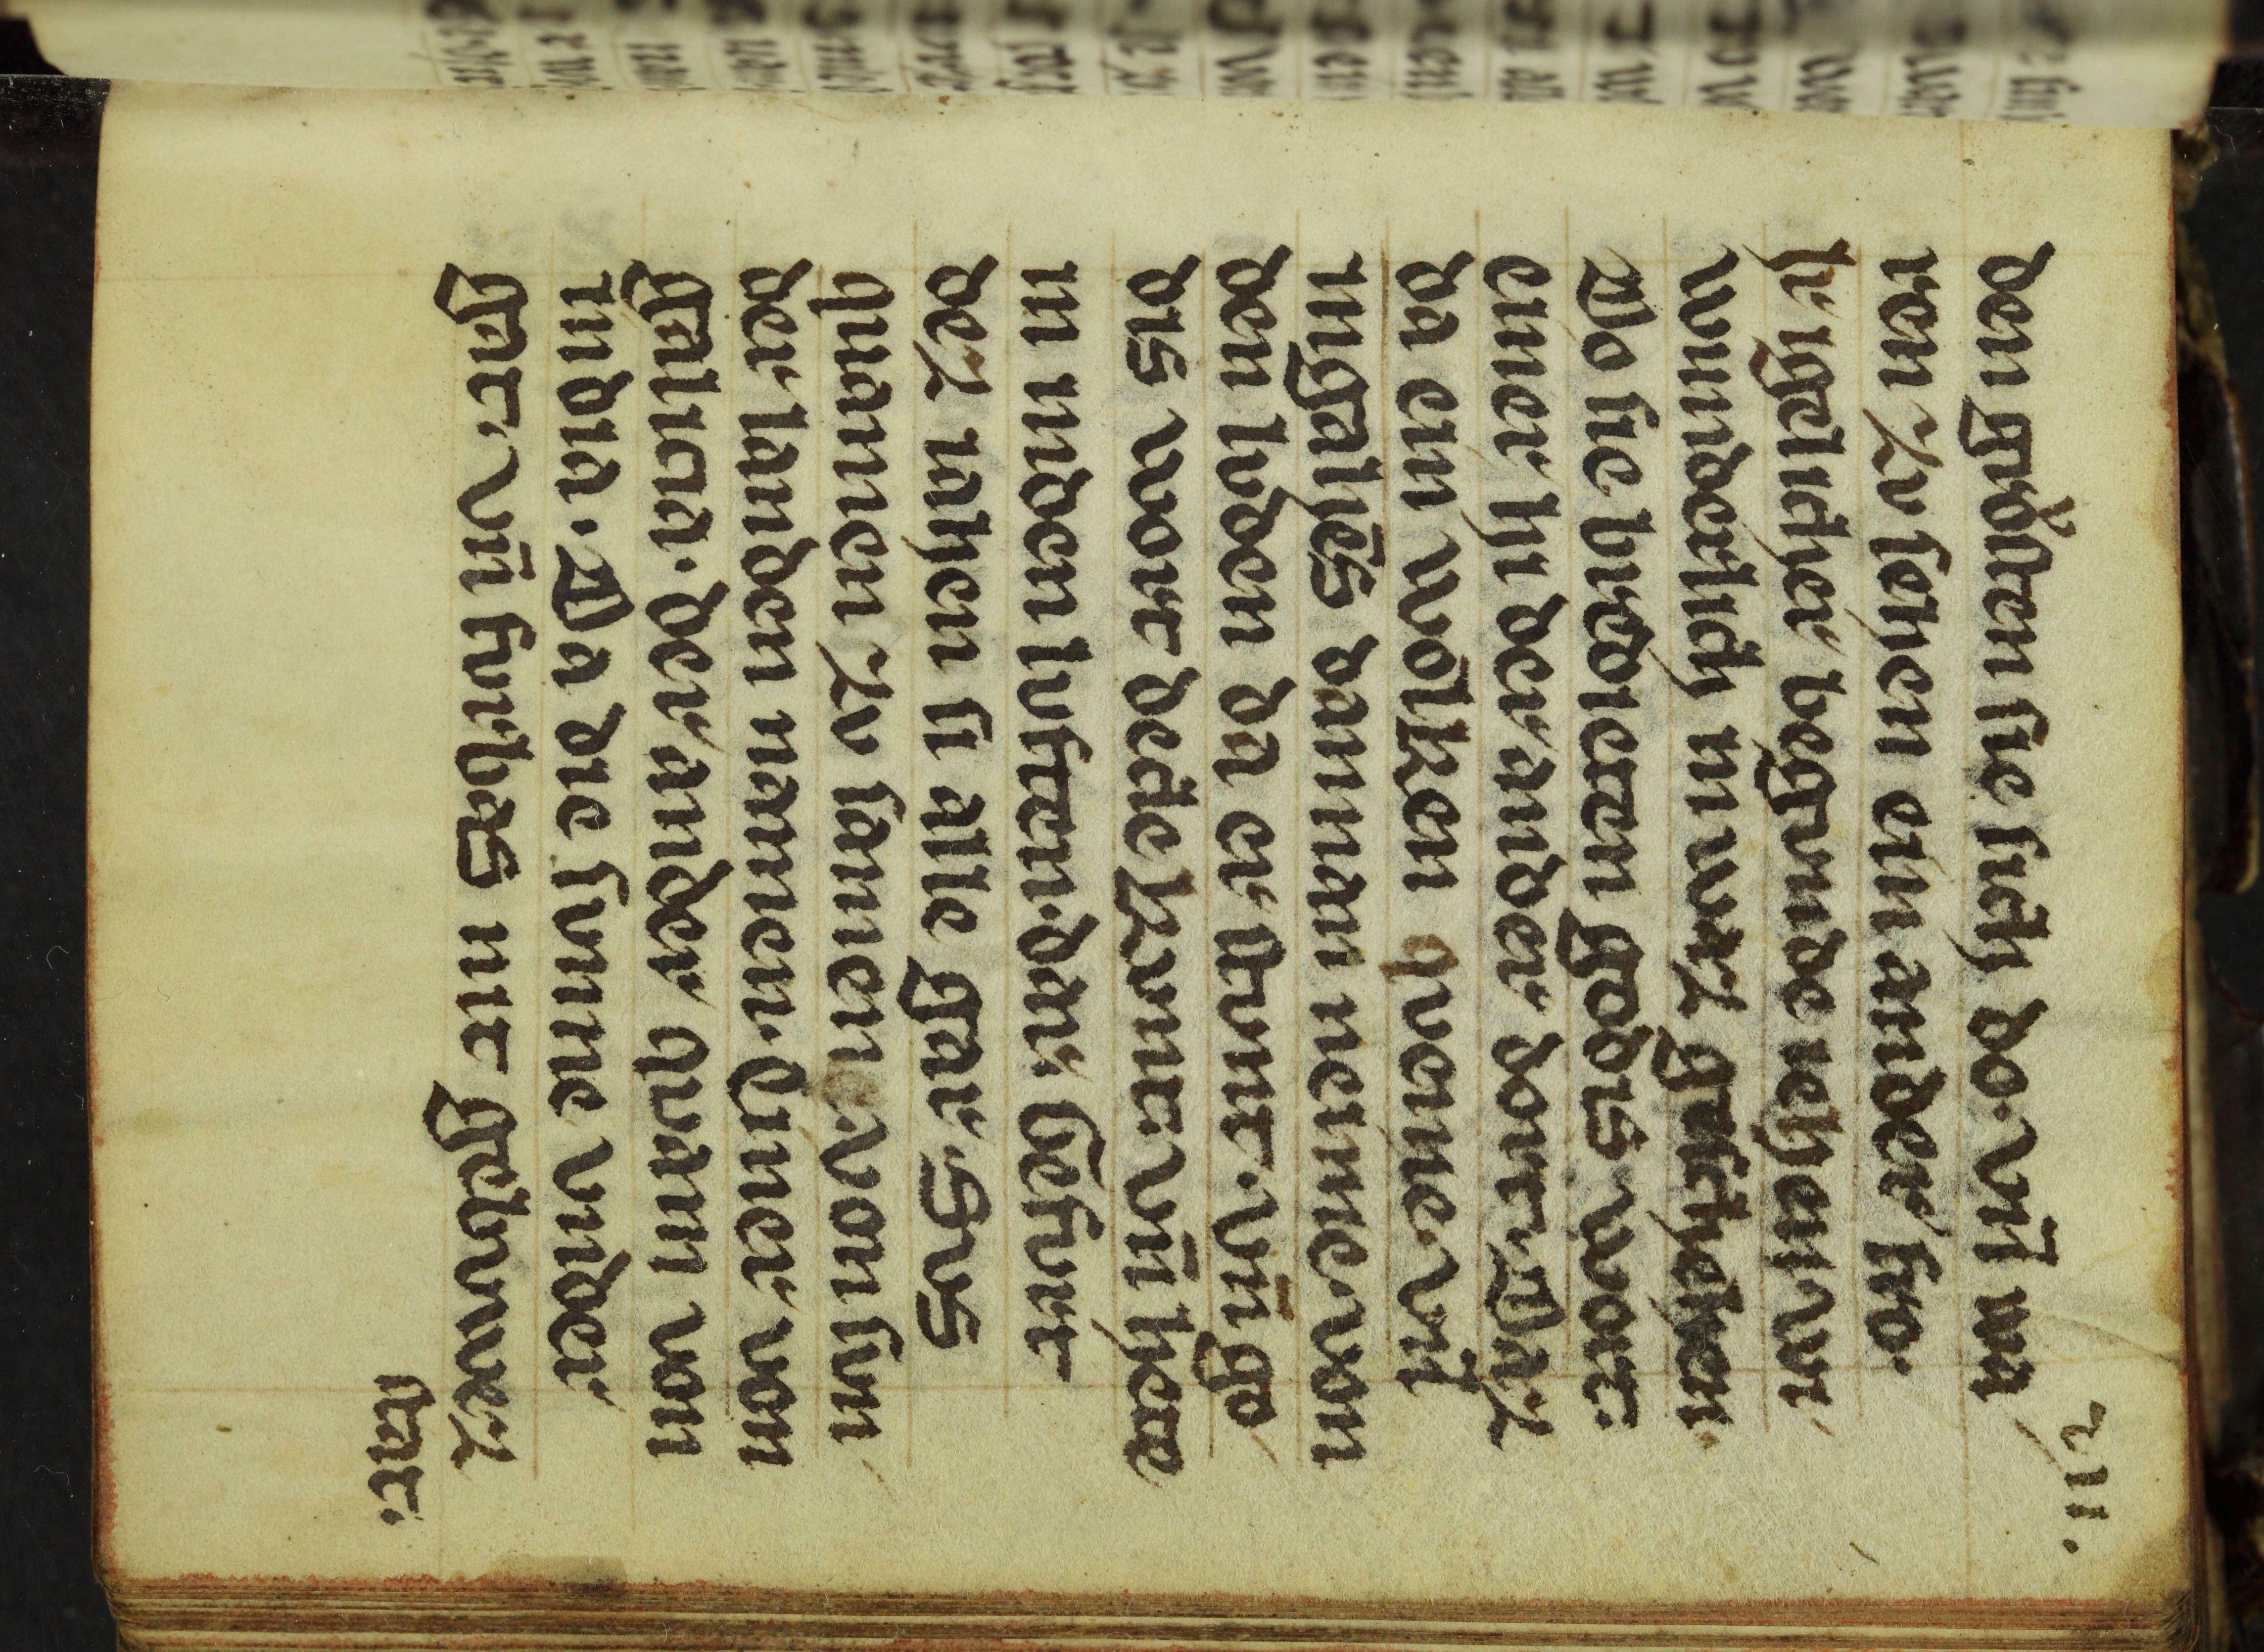 xii.
den gudͤlten sie sich do. vn̄ wa
ren zv sehen ein ander fro.
Ir igelicher begvnde iehen wr
wunderlich in waz geschehen.
Do sie bredieten godis wort.
einer hi der ander dort. Daz
da ein wolken queme. vn̄
in gahēs dannan neme. von
den lvden da er stunt. vn̄ ge
dis wort dede kvnt. vn̄ hette
in in den lvften. dar gefurt
dez iahen si alle gar. Svs
quamen zv samen. von fvn
der landen namen. Einer von
galicia. der ander quam von
india. Da die svnne vnder
gat. vn̄ fvrbas nit gebuwez
stat.